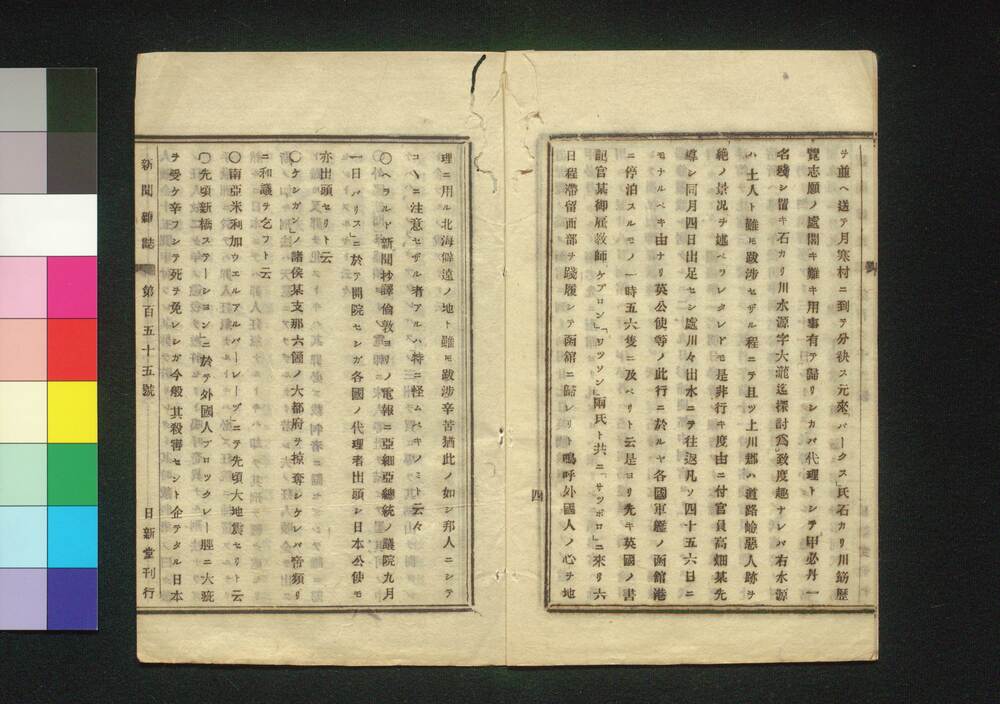 ヲ並ヘ送テ月寒村ニ到ヲ分袂ス元來「パークス」氏石カリ川筋歴
覽志願ノ處聞キ難キ用事有テ歸リシカバ代理トシテ甲必丹一
名殘シ留キ石カリ川水源字大瀧迄探討爲致度趣ナレバ右水源
ハ土人ト雖モ跋涉セザル程ニテ且ツ上川郡ハ道路嶮惡人跡ヲ
絶ノ景况ヲ述ベツレタレドモ是非行キ度由ニ付官員高畑某先
導シ同月四日出足セシ處川々出水ニテ往返凡ソ四十五六日ニ
モナルベキ由ナリ英公使等ノ此行ニ於ルヤ各國軍艦ノ函館港
ニ停泊スルモノ一時五六隻ニ及ベリト云是ヨリ先キ英國ノ書
記官某御雇敎師ケプロン」「ワツソン」兩氏ト共ニ「サツポロ」ニ來リ六
日程滯留西部ヲ踐履シテ函館ニ歸レリト嗚呼外國人ノ心ヲ地
四
理ニ用ル北海僻遠ノ地ト雖モ跋涉辛苦猶此ノ如シ邦人ニシテ
コヽニ注意セザル者アルハ特ニ怪ムベキノミト云々
〇ヘラルド新聞抄譯倫敦ヨリノ電報ニ亞細亞總統ノ議院九月
一日「パリス」ニ於テ開院セシガ各國ノ代理者出頭シ日本公使モ
亦出頭セリト云
〇ケシガン」ノ諸侯某支那六個ノ大都府ヲ掠奪シケレバ帝頻リ
ニ和議ヲ乞フト云
〇南亞米利加ウエルアルパーレーブ」ニテ先頃大地震セリト云
〇先頃新橋ステーシヨン」ニ於テ外國人ブロツクレー脛ニ大疵
ヲ受ケ辛フシテ死ヲ免レシガ今般其殺害セント企テタル日本
新聞雜誌 第百五十五號 日新堂刊行